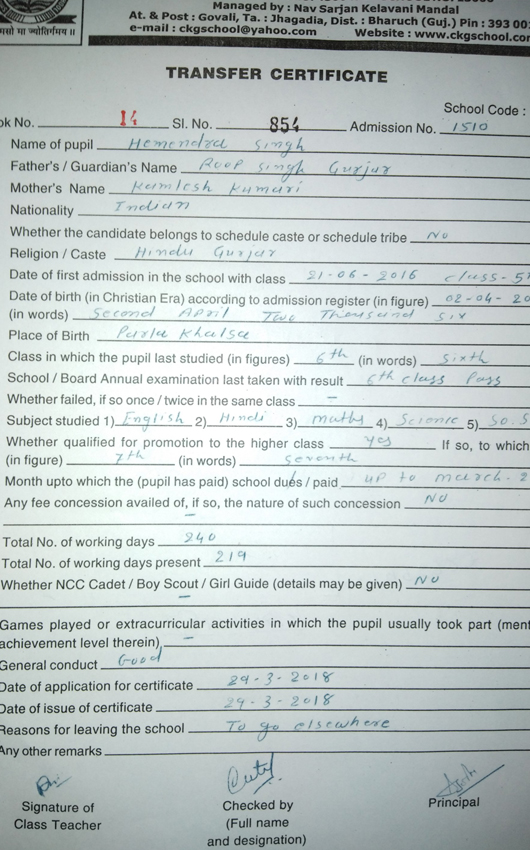 Managed by : Nav Sarjan Kelavani Mandal
At. & Post : Govali, Ta. : Jhagadia, Dist. : Bharuch (Guj.) Pin : 393 00
e-mail : ckgschool@yahoo.com Website : www.ckgschool.con
तमसो मा ज्योतिर्गमय ॥
TRANSFER CERTIFICATE
School Code :
ok No. 14 Sl. No. 854 Admission No. 1510
Name of pupil Hemendra Singh
Father's / Guardian's Name Roop Singh Gurjar
Mother's Name Kamlesh Kumari
Nationality Indian
Whether the candidate belongs to schedule caste or schedule tribe No
Religion / Caste Hindu Gurjar
Date of first admission in the school with class 21-06-2016 class-5
Date of birth (in Christian Era) according to admission register (in figure) 02-04-20
(in words) Second April Two Thousand six
Place of Birth Parla Khalsa
Class in which the pupil last studied (in figures) 6th (in words) Sixth
School / Board Annual examination last taken with result 6th class Pass
Whether failed, if so once / twice in the same class –
Subject studied 1) English 2) Hindi 3) maths 4) Science 5) So.S
Whether qualified for promotion to the higher class yes If so, to which
(in figure) 7th (in words) Seventh
Month upto which the (pupil has paid) school dues / paid up to march-2
Any fee concession availed of, if so, the nature of such concession NO
–
Total No. of working days 240
Total No. of working days present 219
Whether NCC Cadet / Boy Scout / Girl Guide (details may be given) NO
–
Games played or extracurricular activities in which the pupil usually took part (ment
achievement level therein) –
General conduct Good
Date of application for certificate 29-3-2018
Date of issue of certificate 29-3-2018
Reasons for leaving the school To go elsewhere
Any other remarks
Signature of
Class Teacher
Checked by
(Full name
and designation)
Principal